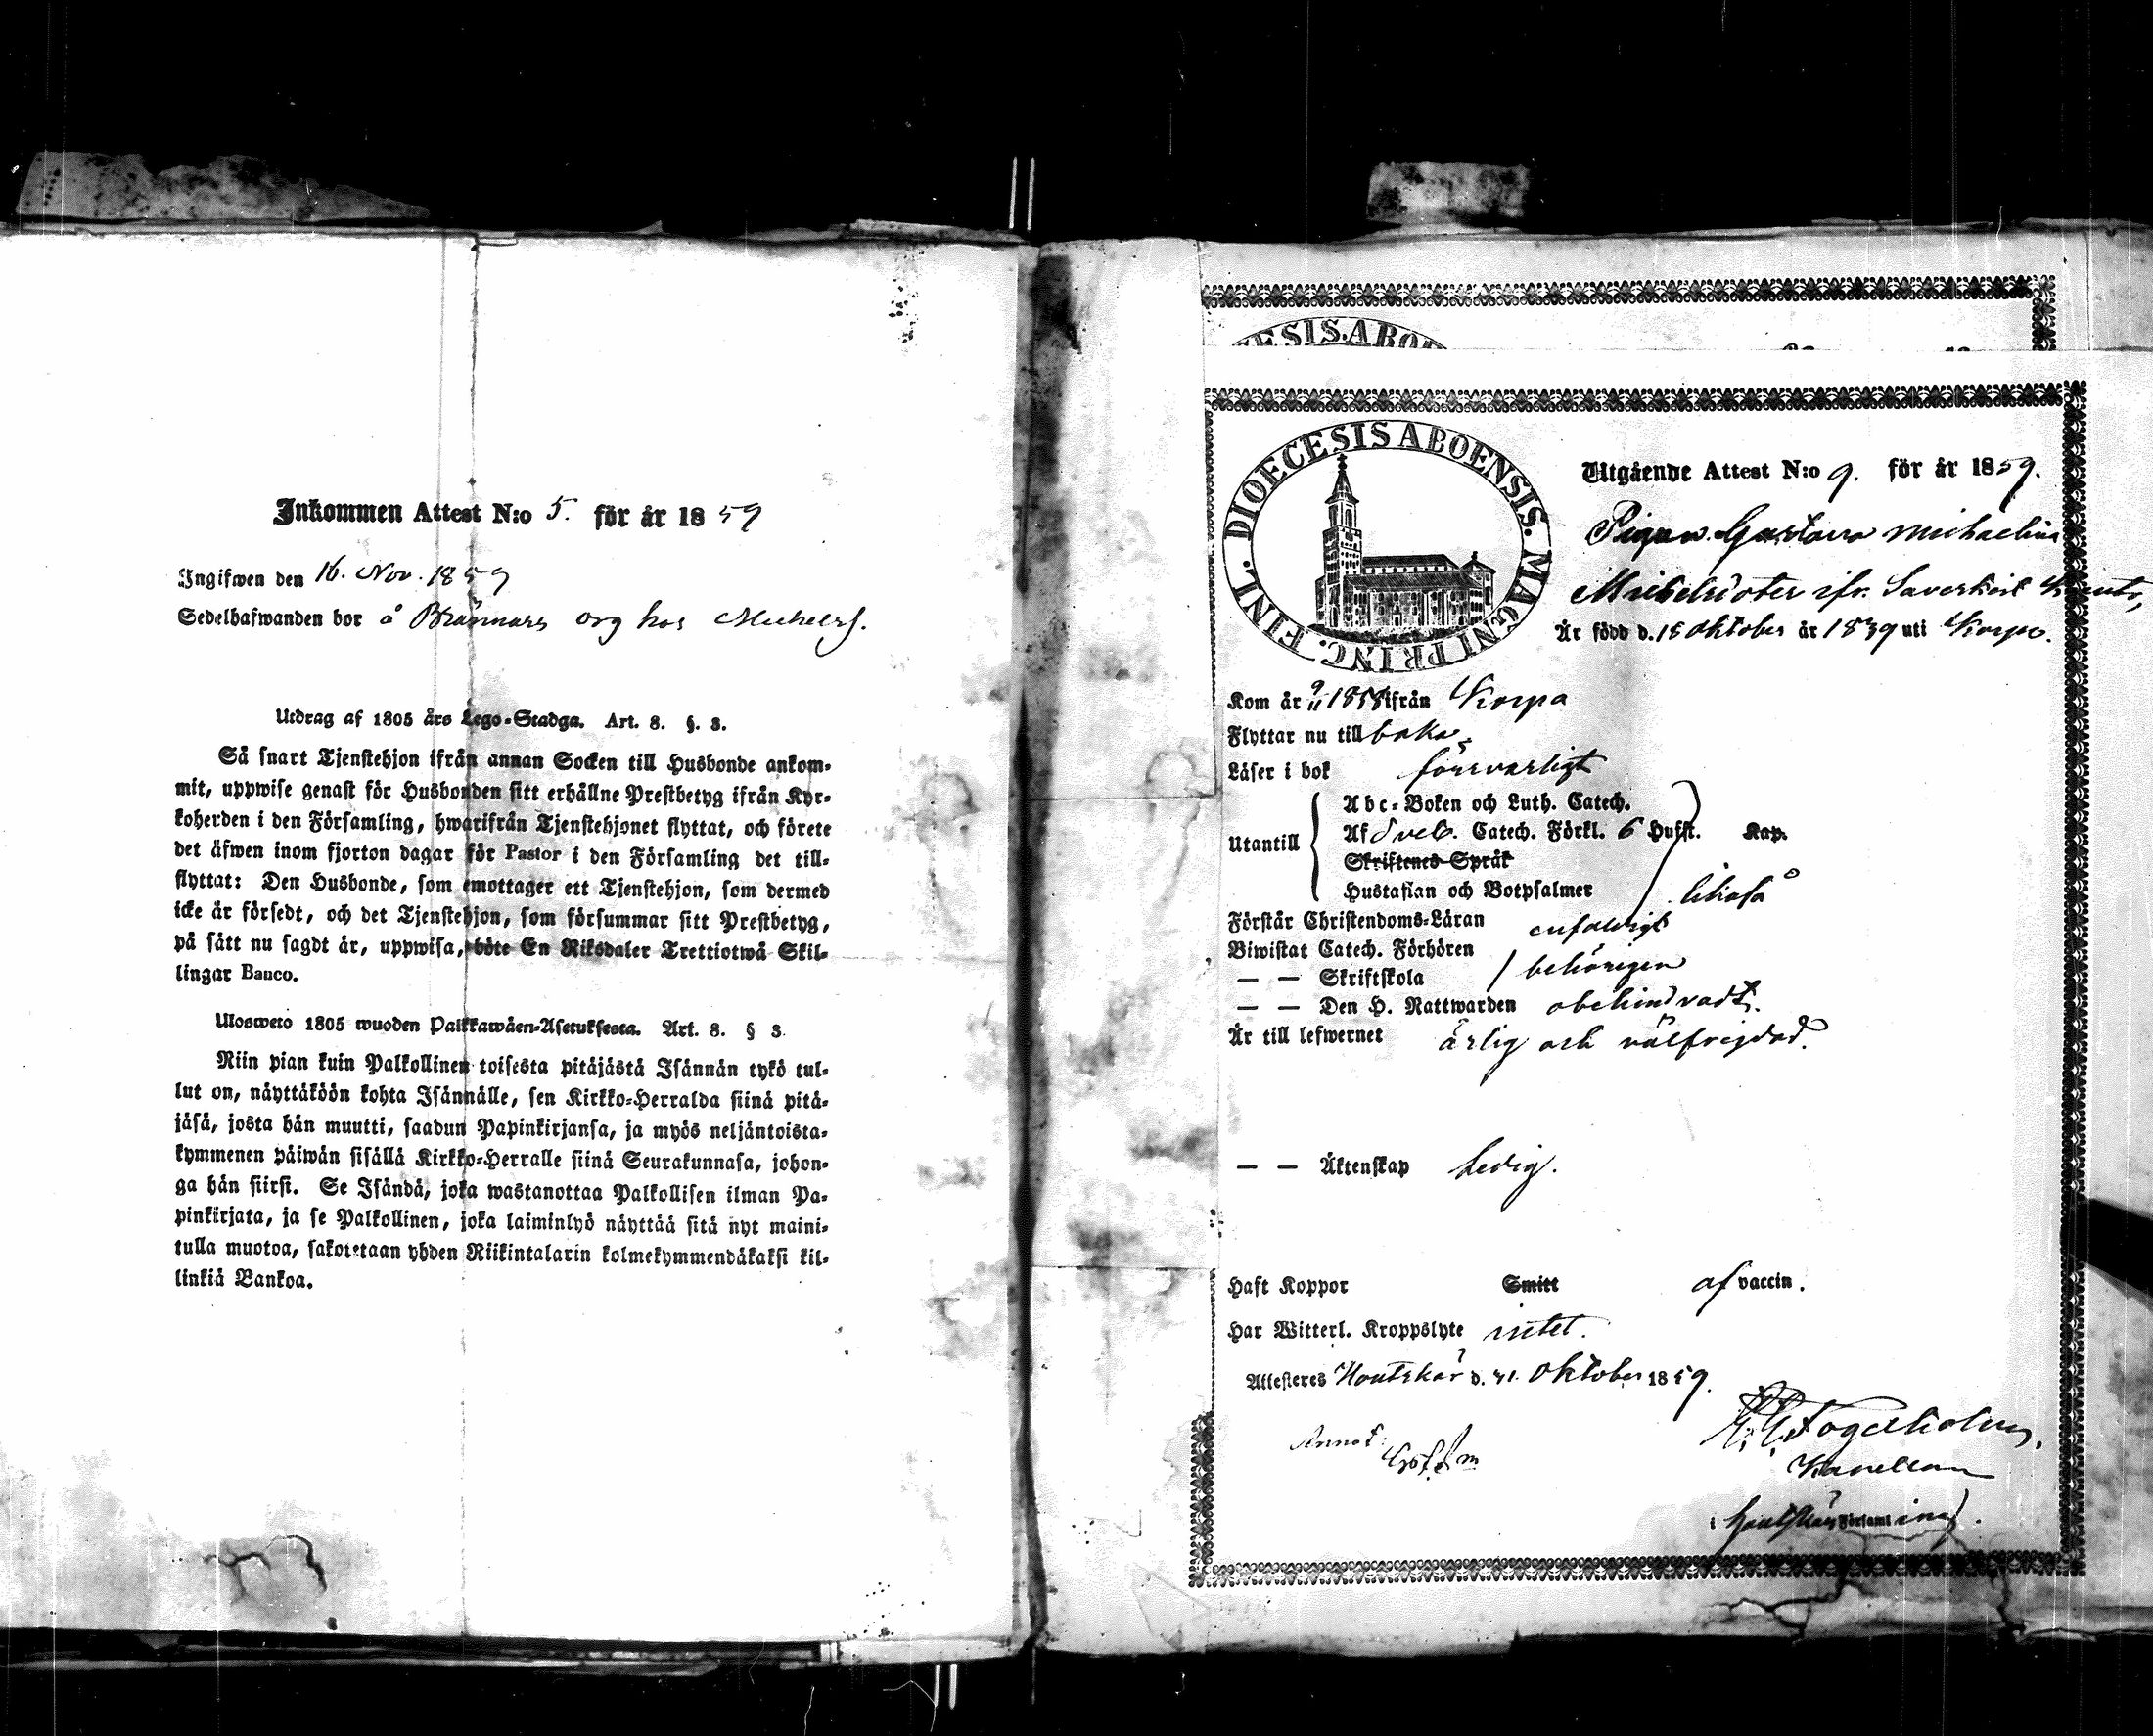 Inkommen Attest N:o 5. för år 1859
Ingifwen den 16. Nov. 1859
Sedelhafwanden bor å Brännars org hos
Utdrag af 1805 års Lego-Stadga. Art. 8. §. 3.
Så snart Tjenstehjon ifrån annan Socken till Husbonde ankom-
mit, uppwise genast för Husbonden sitt erhållne Prestbetyg ifrån Kyr-
koherden i den Församling, hwarifrån Tjenstehjonet flyttat, och förete
det äfwen inom fjorton dagar för Pastor i den Församling det till-
flyttat: Den Husbonde, som emottager ett Tjenstehjon, som dermed
icke är försedt, och det Tjenstehjon, som försummar sitt Prestbetyg,
på sätt nu sagdt är, uppwisa, böte En Riksdaler Trettiotwå Skil-
lingar Banco.
Ulosweto 1805 wuoden Palkkawäen-Asetuksesta. Art. 8. § 3.
Niin pian kuin Palkollinen toisesta pitäjästä Isännän tykö tul-
lut on, näyttäköön kohta Isännälle, sen Kirkko-Herralda siinä pitä-
jäsä, josta hän muutti, saadun Papinkirjansa, ja myös neljäntoista-
kymmenen päiwän sisällä Kirkko-Herralle siinä Seurakunnasa, johon-
ga hän siirsi. Se Isändä, joka wastanottaa Palkollisen ilman Pa-
pinkirjata, ja se Palkollinen, joka laiminlyö näyttää sitä nyt maini-
tulla muotoa, sakotetaan yhden Riikintalarin kolmekymmendäkaksi kil-
linkiä Bankoa.
ESIS.ABO
FINL. DIOECESIS ABOENSIS. MAGNI PRINC.
Utgående Attest N:o 9. för år 1859.
Pigan Gustava Michaelina
ifr. Saverkeit
Är född d. 18 Oktober år 1839 uti Korpo.
Kom år 1858 ifrån Korpo
Flyttar nu till baka
Läser i bok försvarligt
Utantill
Abc-Boken och Luth. Catech.
Af Sveb. Catech. Förkl. 6 Hufst. Kap.
Skriftenes Språk
Hustaflan och Botpsalmer likaså
Förstår Christendoms-Läran enfaldigt
Biwistat Catech. Förhören
— — Skriftskola behörigen
— — Den H. Nattwarden obehindradt.
Är till lefwernet ärlig och välfrejdad.
— — Äktenskap Ledig.
Haft Koppor Smitt af vaccin.
Har Witterl. Kroppslyte intet.
Attesteres Houtskär d. 31. Oktober 1859.
Fogelholm,
Kapellan
Annot:
i Houtskärs Församling.